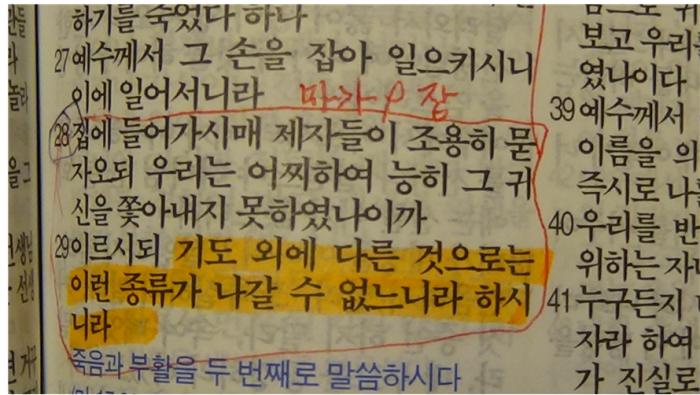 하기를 죽었다 하나
27 예수께서 그 손을 잡아 일으키시니
이에 일어서니라 마가 9장
28 집에 들어가시매 제자들이 조용히 묻
자오되 우리는 어찌하여 능히 그 귀
신을 쫓아내지 못하였나이까
29 이르시되 기도 외에 다른 것으로는
이런 종류가 나갈 수 없느니라 하시
니라
죽음과 부활을 두 번째로 말씀하시다
보고 우리를
였나이다
39 예수께서
이름을 의
즉시로 나를
40 우리를 반
위하는 자니
41 누구든지
자라 하여
가 진실로